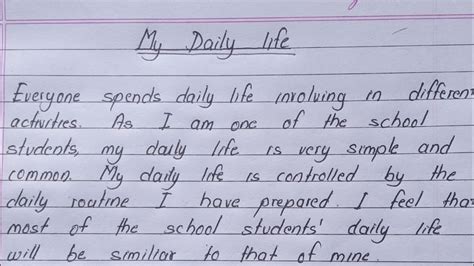 My Daily life
Everyone spends daily life involving in different
activities. As I am one of the school
students, my daily life is very simple and
common. My daily life is controlled by the
daily routine I have prepared. I feel that
most of the school students' daily life
will be similiar to that of mine.